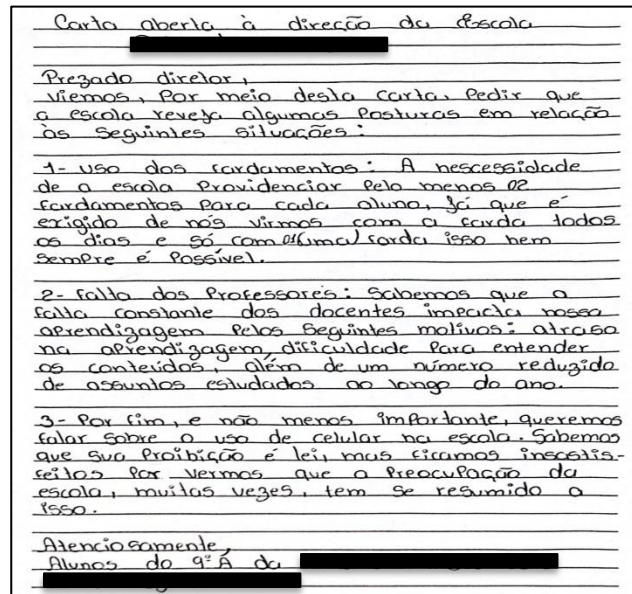 Carta aberta à direção da Escola
Prezado diretor,
viemos, por meio desta carta, pedir que
a escola reveja algumas posturas em relação
às seguintes situações:
1- uso dos fardamentos: A nescessidade
de a escola providenciar pelo menos 02
fardamentos para cada aluno, já que é
exigido de nós virmos com a farda todos
os dias e só com 01(uma) farda isso nem
sempre é possível.
2- falta dos professores: Sabemos que a
falta constante dos docentes impacta nossa
aprendizagem pelos seguintes motivos: atraso
na aprendizagem, dificuldade para entender
os conteúdos, além de um número reduzido
de assuntos estudados ao longo do ano.
3- Por fim, e não menos importante, queremos
falar sobre o uso de celular na escola. Sabemos
que sua proibição é lei, mas ficamos insastis-
feitos por vermos que a preocupação da
escola, muitas vezes, tem se resumido a
isso.
Atenciosamente,
Alunos do 9º A da